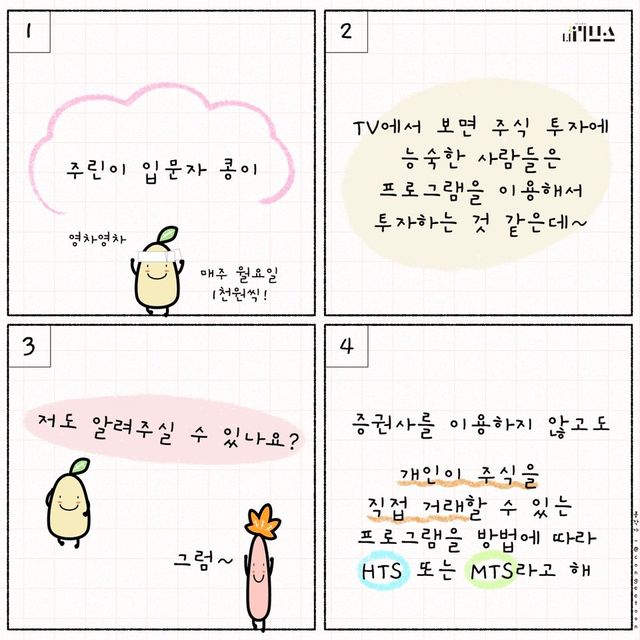 1
주린이 입문자 콩이
영차영차
매주 월요일
1천원씩!
2
TV에서 보면 주식 투자에
능숙한 사람들은
프로그램을 이용해서
투자하는 것 같은데~
3
저도 알려주실 수 있나요?
그럼~
4
증권사를 이용하지 않고도
개인이 주식을
직접 거래할 수 있는
프로그램을 방법에 따라
HTS 또는 MTS라고 해